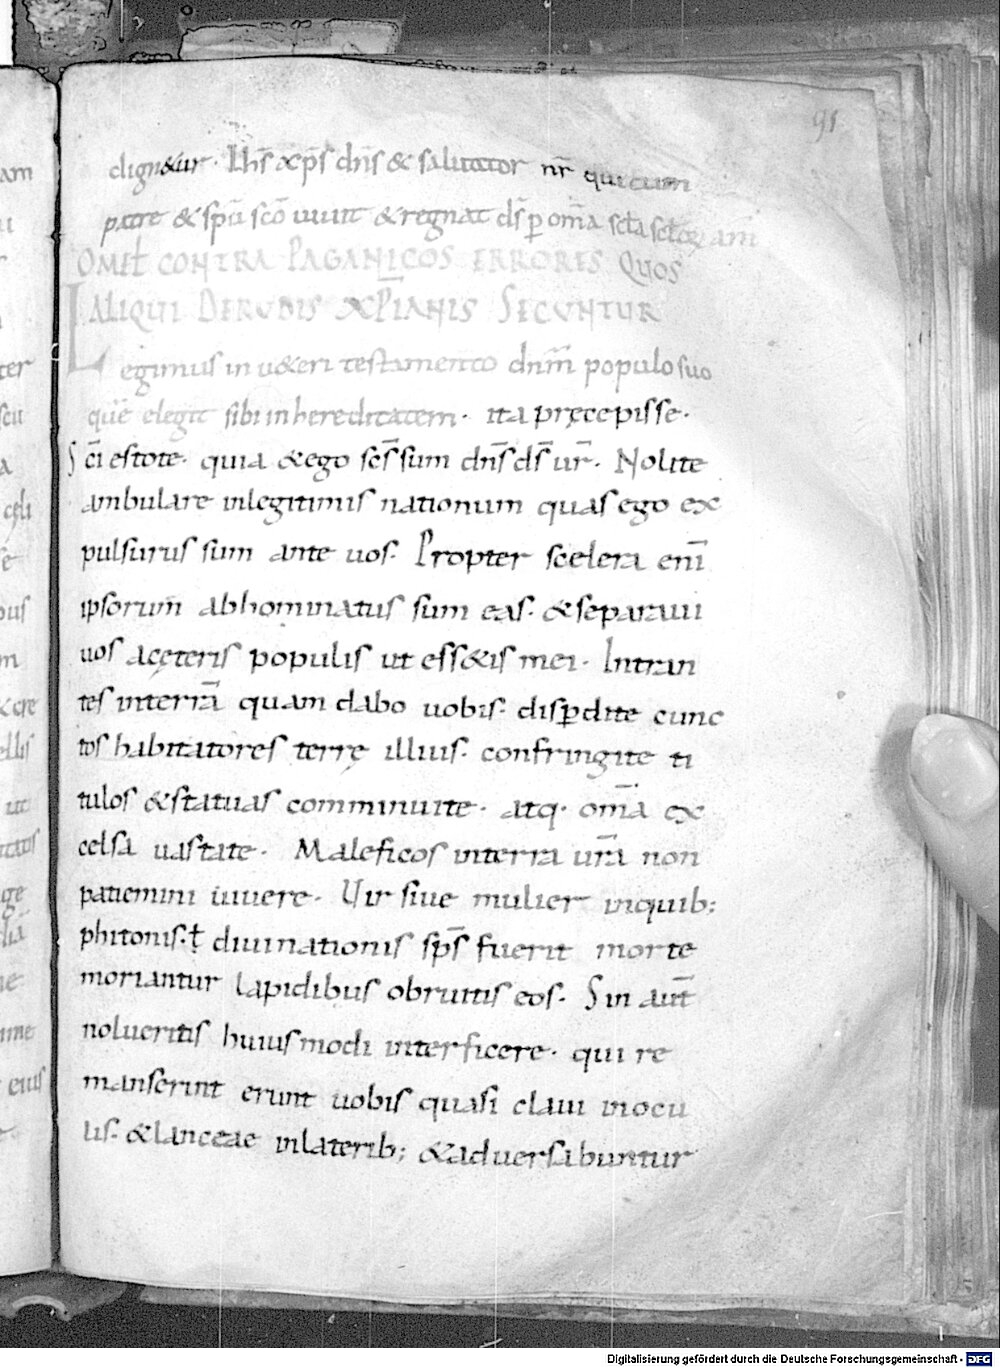 91
dign&ur· Ihs xps dns & saluator nr qui cum
patre & spu sco uiuit & regnat ds p oma scla sclor am
OMEL CONTRA PAGANICOS ERRORES QUOS
ALIQUI DE RUDIS XPIANIS SECUNTUR
Legimus in u&eri testamento dnm populo suo
quę elegit sibi in hereditatem· ita pręcepisse·
Sci estote· quia &ego scs sum dns ds ur· Nolite
ambulare inlegitimis nationum quas ego ex
pulsurus sum ante uos· Propter scelera eni
ipsorum abhominatus sum eas· &separaui
uos aceteris populis ut ess&is mei· Intran
tes interra quam dabo uobis· dispdite cunc
tos habitatores terrę illius· confringite ti
tulos &statuas comminuite· atq· oma ex
celsa uastate· Maleficos interra ura non
patiemini uiuere· Uir siue mulier inquib;
phitonis·ł diuinationis sps fuerit morte
moriantur lapidibus obruitis eos· Sin aut
nolueritis huiusmodi interficere· qui re
manserint erunt uobis quasi claui inocu
lis· &lanceae inlaterib; &aduersabuntur
Digitalisierung gefördert durch die Deutsche Forschungsgemeinschaft - DFG